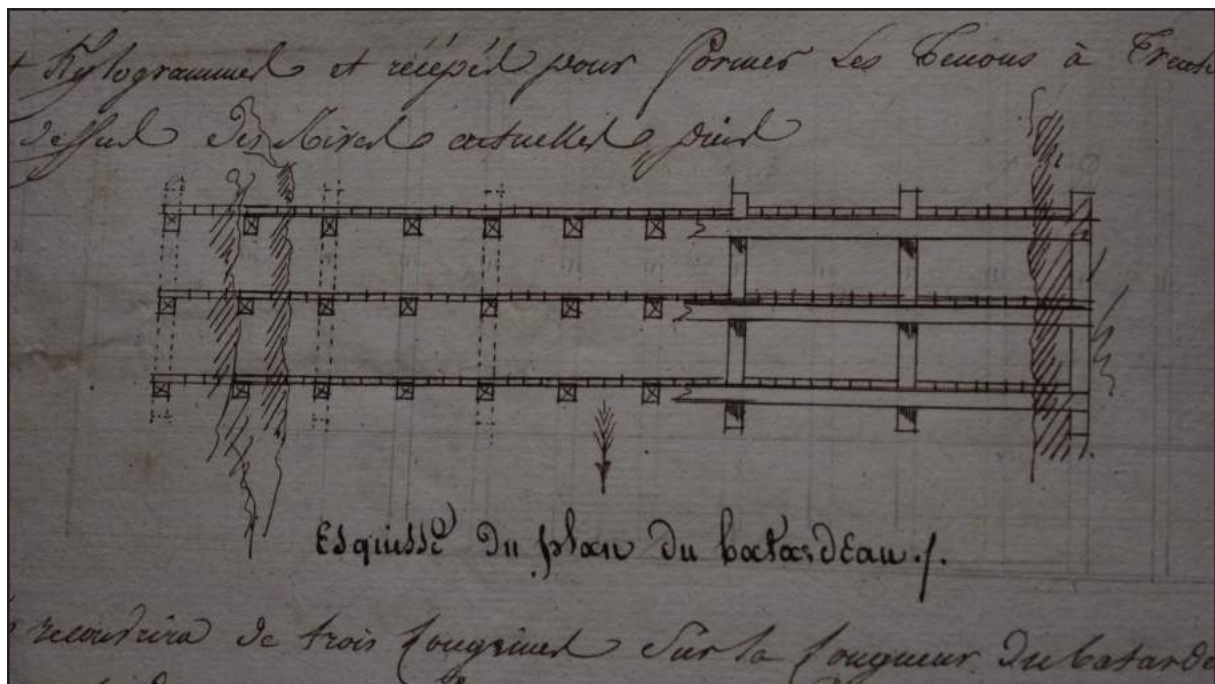 Kylogrammes et récépés pour former Les Tenons à Trente
dessus Des Rives actuelles, puis
Esquisse Du plan Du batardeau./.
recouvrira De trois Longrines Sur la Longueur Du batarde